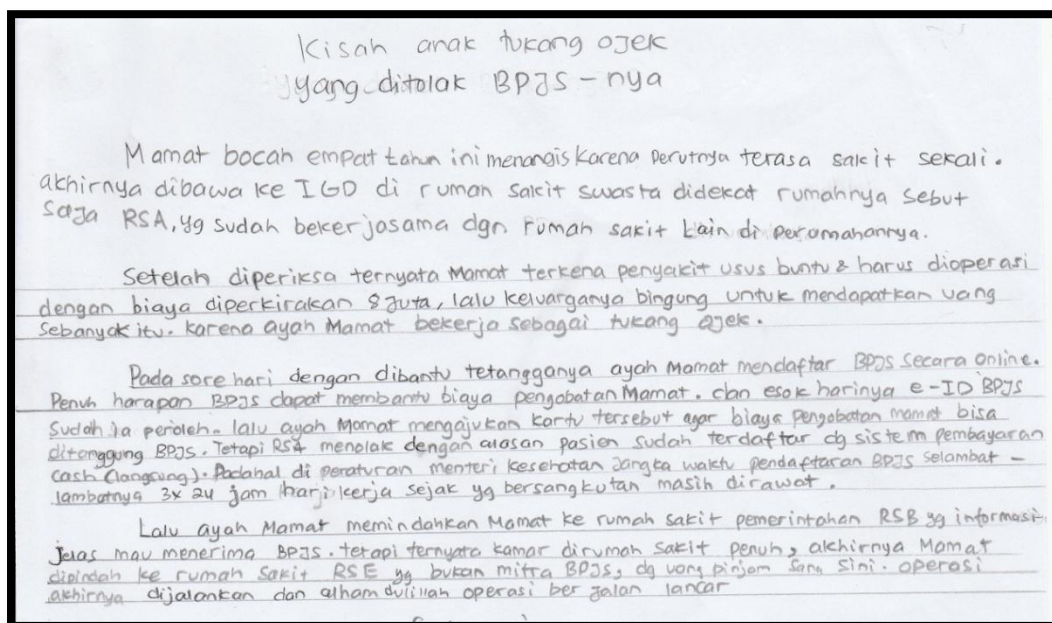 Kisah anak tukang ojek
yang ditolak BPJS - nya
Mamat bocah empat tahun ini menangis karena perutnya terasa sakit sekali.
akhirnya dibawa ke IGD di rumah sakit swasta didekat rumahnya sebut
saja RSA, yg sudah bekerjasama dgn rumah sakit lain di perumahannya.
Setelah diperiksa ternyata Mamat terkena penyakit usus buntu & harus dioperasi
dengan biaya diperkirakan 8 juta, lalu keluarganya bingung untuk mendapatkan uang
sebanyak itu. karena ayah Mamat bekerja sebagai tukang ojek.
Pada sore hari dengan dibantu tetangganya ayah Mamat mendaftar BPJS secara online.
Penuh harapan BPJS dapat membantu biaya pengobatan Mamat. dan esok harinya e-ID BPJS
sudah ia peroleh. lalu ayah Mamat mengajukan kartu tersebut agar biaya pengobatan mamat bisa
ditanggung BPJS. Tetapi RSA menolak dengan alasan pasien sudah terdaftar dg sistem pembayaran
cash (langsung). Padahal di peraturan menteri kesehatan jangka waktu pendaftaran BPJS selambat -
lambatnya 3x 24 jam hari kerja sejak yg bersangkutan masih dirawat.
Lalu ayah Mamat memindahkan Mamat ke rumah sakit pemerintahan RSB yg informasi
jelas mau menerima BPJS. tetapi ternyata kamar dirumah sakit penuh, akhirnya Mamat
dipindah ke rumah sakit RSE yg bukan mitra BPJS, dg uang pinjam sana sini. operasi
akhirnya dijalankan dan alhamdulillah operasi berjalan lancar